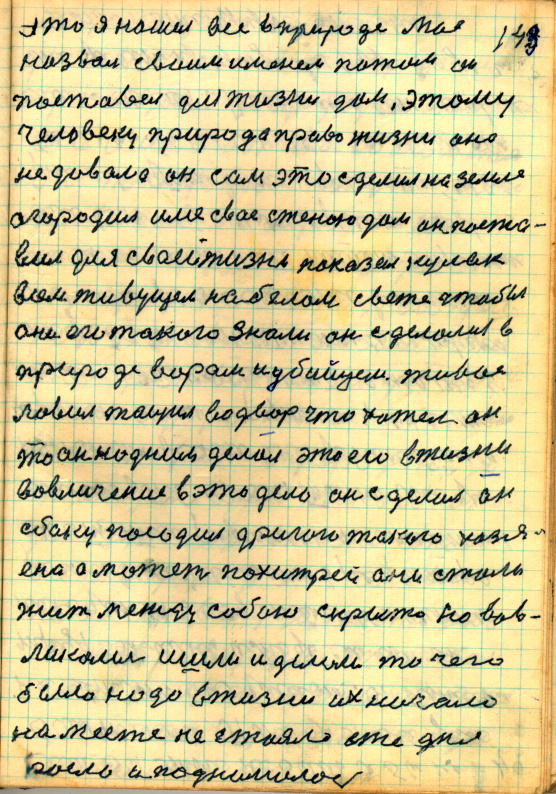 это я нашел все в природе мае 149
назвал своим именем потом он
поставел для жизни дом, этому
человеку природа право жизни она
не довала он сам это сделил на земле
огородил име свае стеною дом он поста-
вил для своей жизнь показал кулак
всем живущем на белом свете чтобы
они его такого знали он сделался в
природе ворам и убийцем. живое
ловил тащил водвор что хотел он
то он над ним делал это его в жизни
вовличение в это дело он сделил он
сбаку посодил другого такого хозя-
ена а может похитрей они стали
жит между собою скрыто но вов-
ликали шли и делали то чего
было надо в жизни их начало
на месте не стояло оно для
росло и поднималось